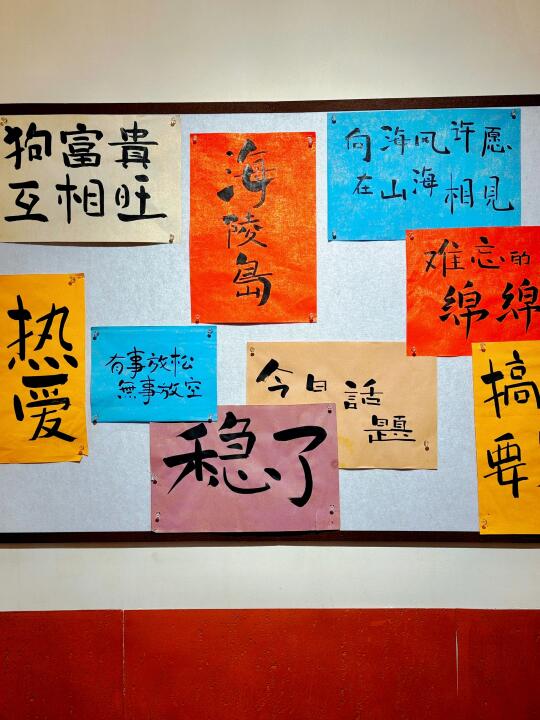 狗富貴
互相旺
海陵島
向海风许愿
在山海相見
难忘的
綿綿
热爱
有事放松
無事放空
今日話題
稳了
搞
要